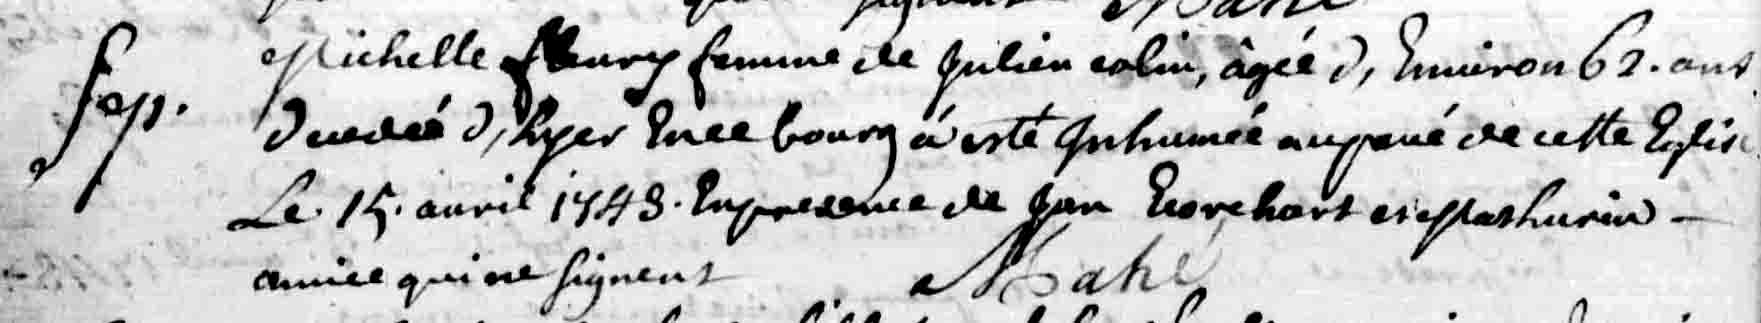 qui signent Mahé
Sep. Michelle fleury femme de Julien colin, âgée d, Environ 62. ans
decedeé d, hyer En ce bourg á esté Inhumée au pavé de cette Eglise
Le 15. avril 1748. En presence de Jan et Mathurin -
amice qui ne signent Mahé